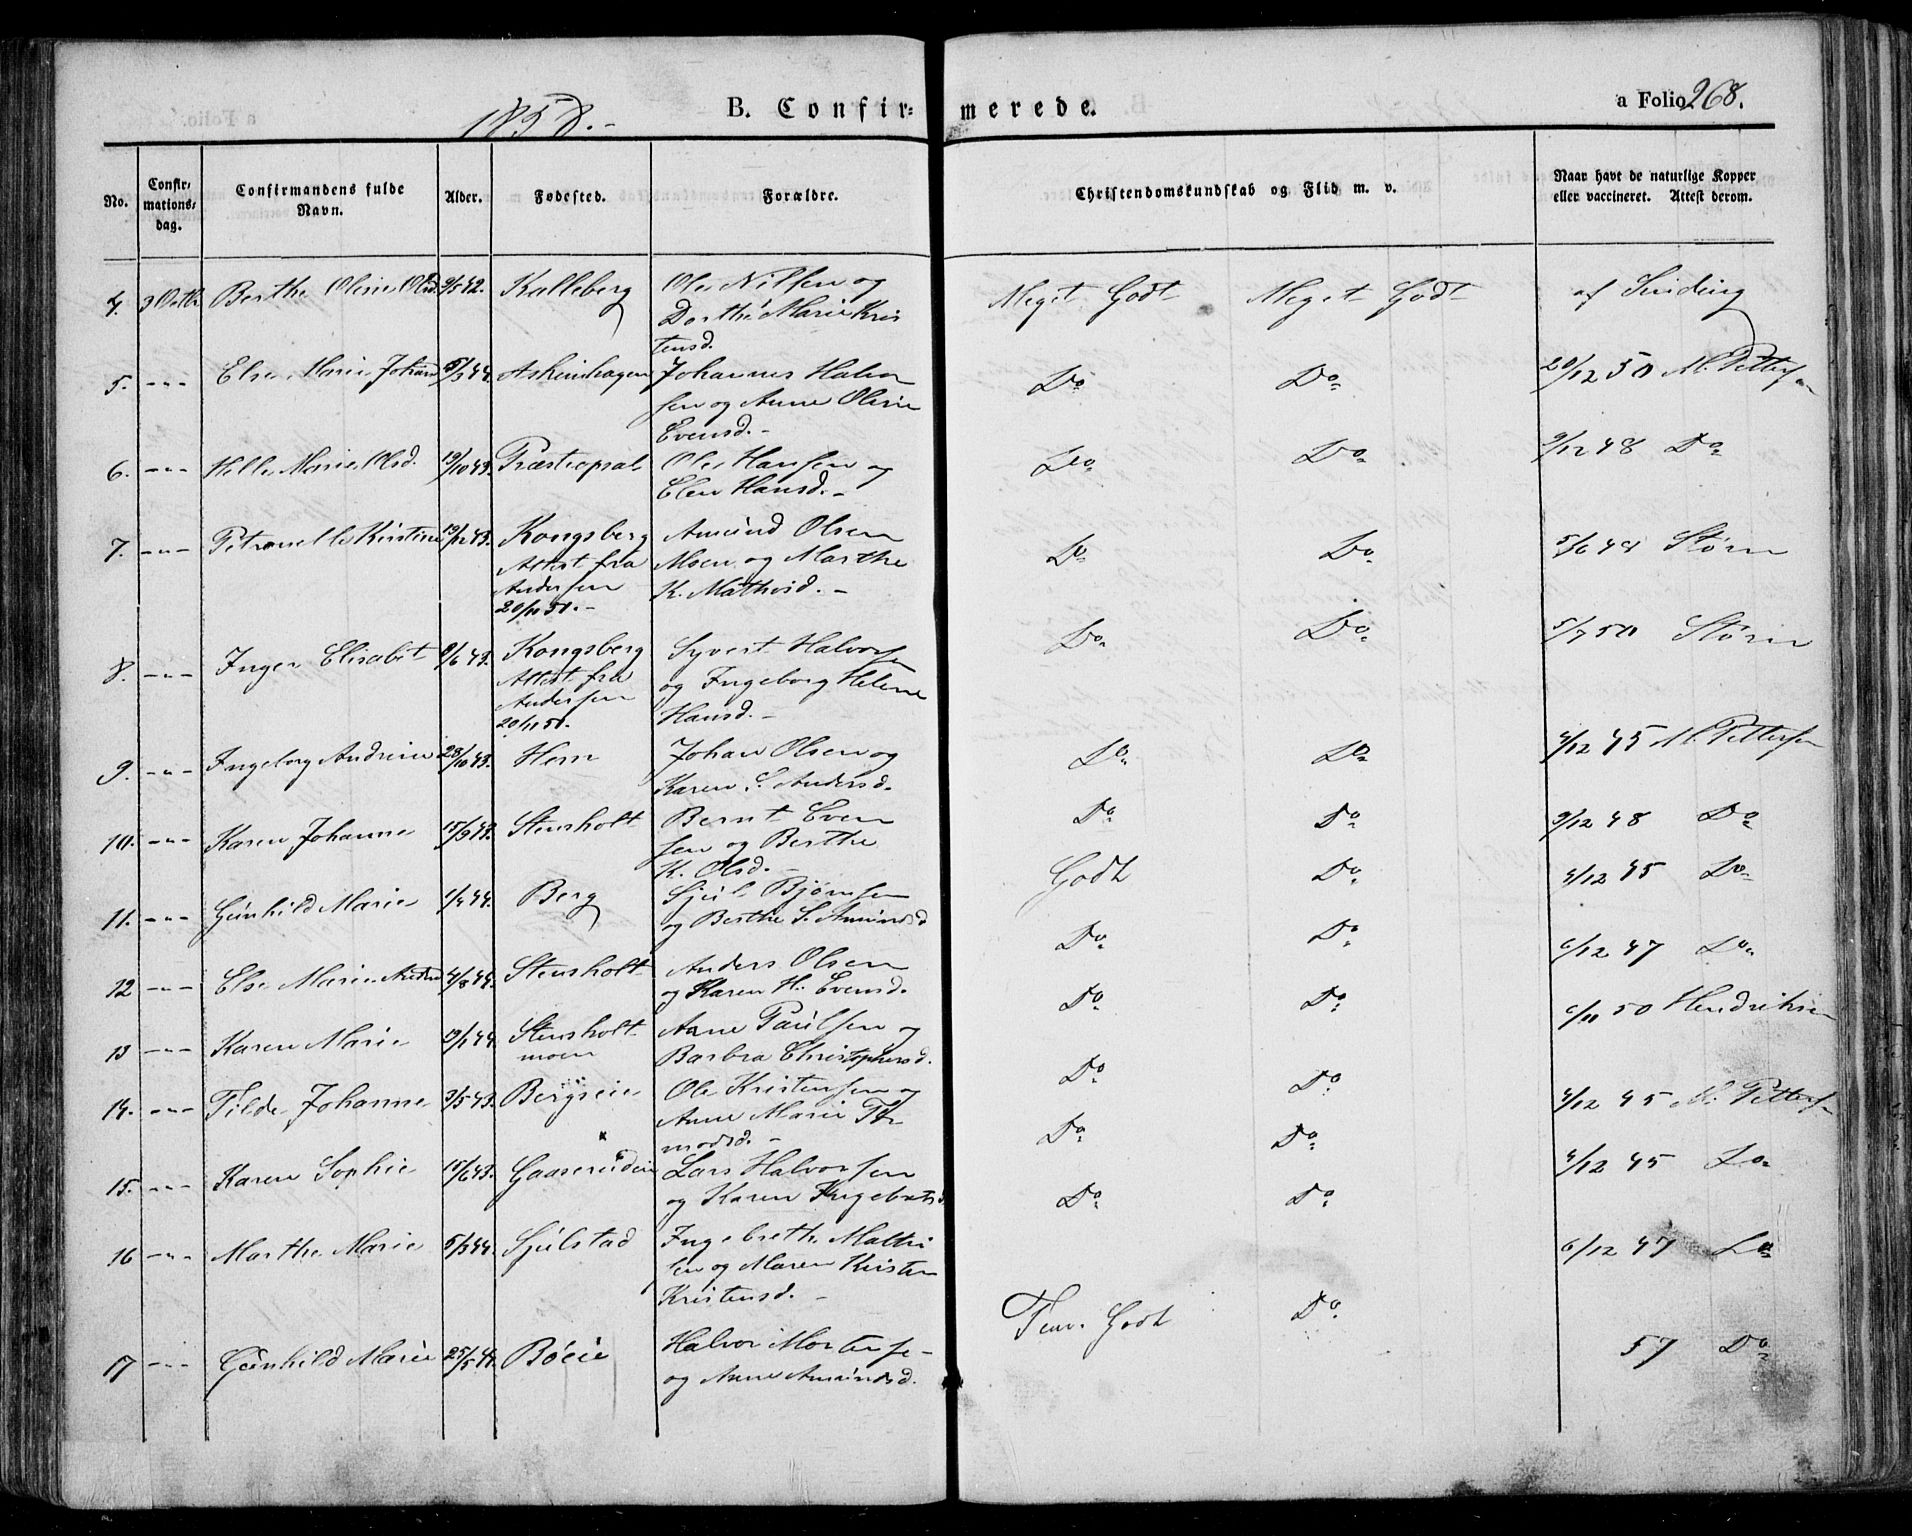 1858.-
B. Confirmerede.
a Folio 268.
No.
Confirmationsdag.
Confirmandens fulde Navn.
Alder.
Fødested.
Forældre.
Christendomskundskab og Flid m. v.
Naar havt de naturlige Kopper eller vaccineret. Attest derom.
4. 3 Octbr Berthe Oline Olsd. 9/5 42. Kalleberg Ole Nilsen og Meget Godt Meget Godt af Sinding
Dorthe Marie Kris
tensd.
5. -"- Else Marie Johand 5/3 44. Askenhagen Johannes Halvor Do Do 20/12 50 M. Pettersen
sen og Anne Oline
Evensd.-
6. -"- Helle Marie Olsd. 19/10 43. Ole Hansen og Do Do 9/12 48 Do
Elen Hansd.-
7. -"- Petronelle Kirstine 19/12 43. Kongsberg Amund Olsen Do Do 5/6 49 Størn
Attest fra Moen og Marthe
Andersen K. Mathisd.-
20/11 51.-
8. -"- Inger Elisabet 9/6 43. Kongsberg Syvert Halvorsen Do Do 5/7 50 Størn
Attest fra og Ingeborg Helene
Andersen Hansd.-
20/11 51.
9. -"- Ingeborg Andrine 28/10 43. Hem Johan Olsen og Do Do 4/12 45 M. Pettersen
Karen S. Andersd.
10. -"- Karen Johanne 15/9 43. Stensholt Bernt Even Do Do 9/12 48 Do
sen og Berthe
K. Olsd.-
11. -"- Gunhild Marie 1/4 44. Berg Sjul Bjørnsen Godt Do 4/12 45 Do
og Berthe S. Amundsd
12 -"- Else Marie Andrea 4/8 44. Stensholt Anders Olsen Do Do 6/12 47 Do
og Karen H. Evensd.
13 -"- Karen Marie 13/1 44. Stensholt Arne Paulsen og Do Do 6/11 50 Hendriksen
moen Barbra Christophersd.
14. -"- Tilde Johanne 3/5 43. Bergseie Ole Kristensen og Do Do 4/12 45 M. Pettersen
Anne Marie Tor
modsd.-
15. -"- Karen Sophie 15/6 43. Gaaserudeie Lars Halvorsen Do Do 4/12 45 Do
og Karen Ingebretsd
16 -"- Marthe Marie 5/3 44. Sjulstad Ingebreth Mathi Do Do 6/12 47 Do
sen og Maren Kirstine
Kristensd.-
17 -"- Gunhild Marie 25/5 44. Bøeie Halvor Mortense- Temr Godt Do 57 Do
og Anne Amundsd.